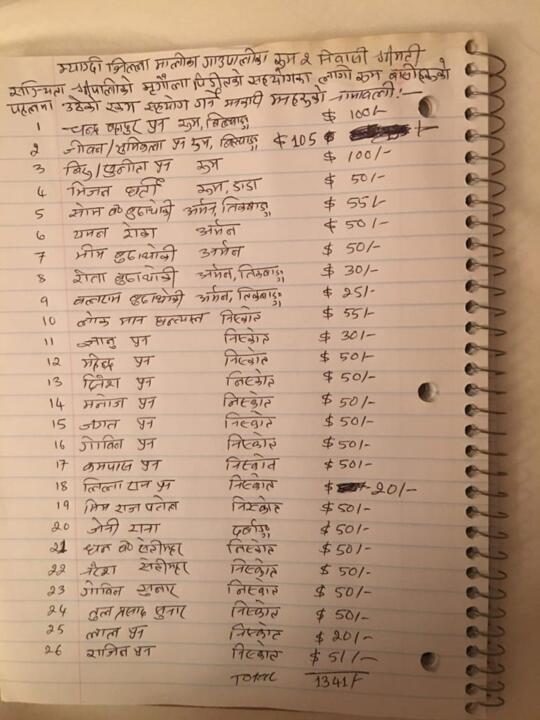 म्याग्दी जिल्ला मालिका गाउँपालिका रूम २ निवासी श्रीमती
गाउँपालिको मृगौला पिडीतको सहयोगका लागी रूम बासीहरुको
पहलमा उठेको रकम सहयोग गर्ने मनहरुको नामावली :-
1 चन्द्र बहादुर पुन रूम, $ 100/-
2 जीवन/ पुन रूम, $ 105 /-
3 पुन रूम $ 100/-
4 मिजन घर्ती रूम, डाडा $ 50/-
5 सोम बुढाथोकी अर्मन, $ 55/-
6 यमन रोका अर्मन $ 50/-
7 भीम बुढाथोकी अर्मन $ 50/-
8 बुढाथोकी अर्मन, $ 30/-
9 बलराम बुढाथोकी अर्मन, $ 25/-
10 लोक मान छन्त्याल निस्कोट $ 55/-
11 ज्ञानु पुन निस्कोट $ 30/-
12 महेन्द्र पुन निस्कोट $ 50/-
13 दिनेश पुन निस्कोट $ 50/-
14 मनोज पुन निस्कोट $ 50/-
15 जगत पुन निस्कोट $ 50/-
16 गोबिन पुन निस्कोट $ 50/-
17 कमपाल पुन निस्कोट $ 50/-
18 पुन निस्कोट $ 20/-
19 भिम राज निस्कोट $ 50/-
20 जेनी राना $ 50/-
21 धन निस्कोट $ 50/-
22 नरेश निस्कोट $ 50/-
23 गोबिन सुनार निस्कोट $ 50/-
24 तुल प्रसाद सुनार निस्कोट $ 50/-
25 लाल पुन निस्कोट $ 20/-
26 राजित पुन निस्कोट $ 51/-
TOTAL 1341/-